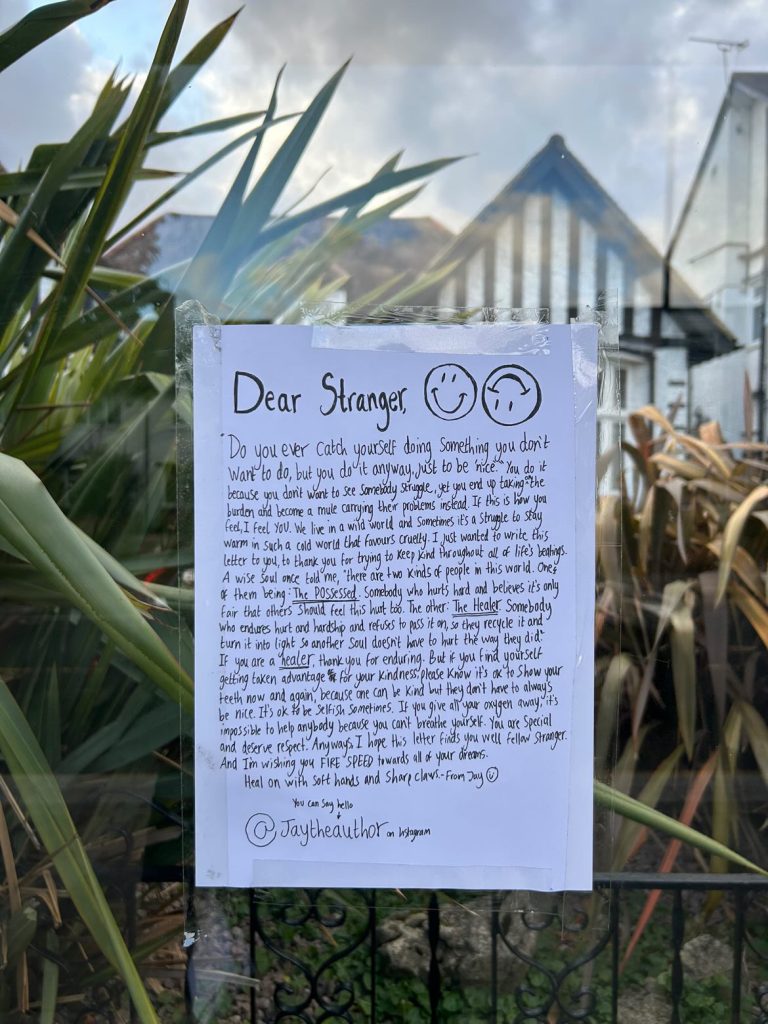 Dear Stranger,
"Do you ever catch yourself doing something you don't
want to do, but you do it anyway, just to be nice." You do it
because you don't want to see somebody struggle, yet you end up taking the
burden and become a mule carrying their problems instead. If this is how you
feel, I feel YOU. We live in a wild world and sometimes it's a struggle to stay
warm in such a cold world that favours cruelty. I just wanted to write this
letter to you, to thank you for trying to keep kind throughout all of life's beatings.
A wise soul once told me, "there are two kinds of people in this world. One
of them being: The Possessed. Somebody who hurts hard and believes it's only
fair that others should feel this hurt too. The other: The Healer. Somebody
who endures hurt and hardship and refuses to pass it on, so they recycle it and
turn it into light so another soul doesn't have to hurt the way they did."
If you are a healer, thank you for enduring. But if you find yourself
getting taken advantage for your kindness, please know it's ok to show your
teeth now and again, because one can be kind but they don't have to always
be nice. It's ok to be selfish sometimes. If you give all your oxygen away, it's
impossible to help anybody because you can't breathe yourself. You are special
and deserve respect. Anyways, I hope this letter finds you well fellow stranger.
And I'm wishing you FIRE SPEED towards all of your dreams.
Heal on with soft hands and sharp claws. - From Jay
You can say hello
@Jaytheauthor on Instagram